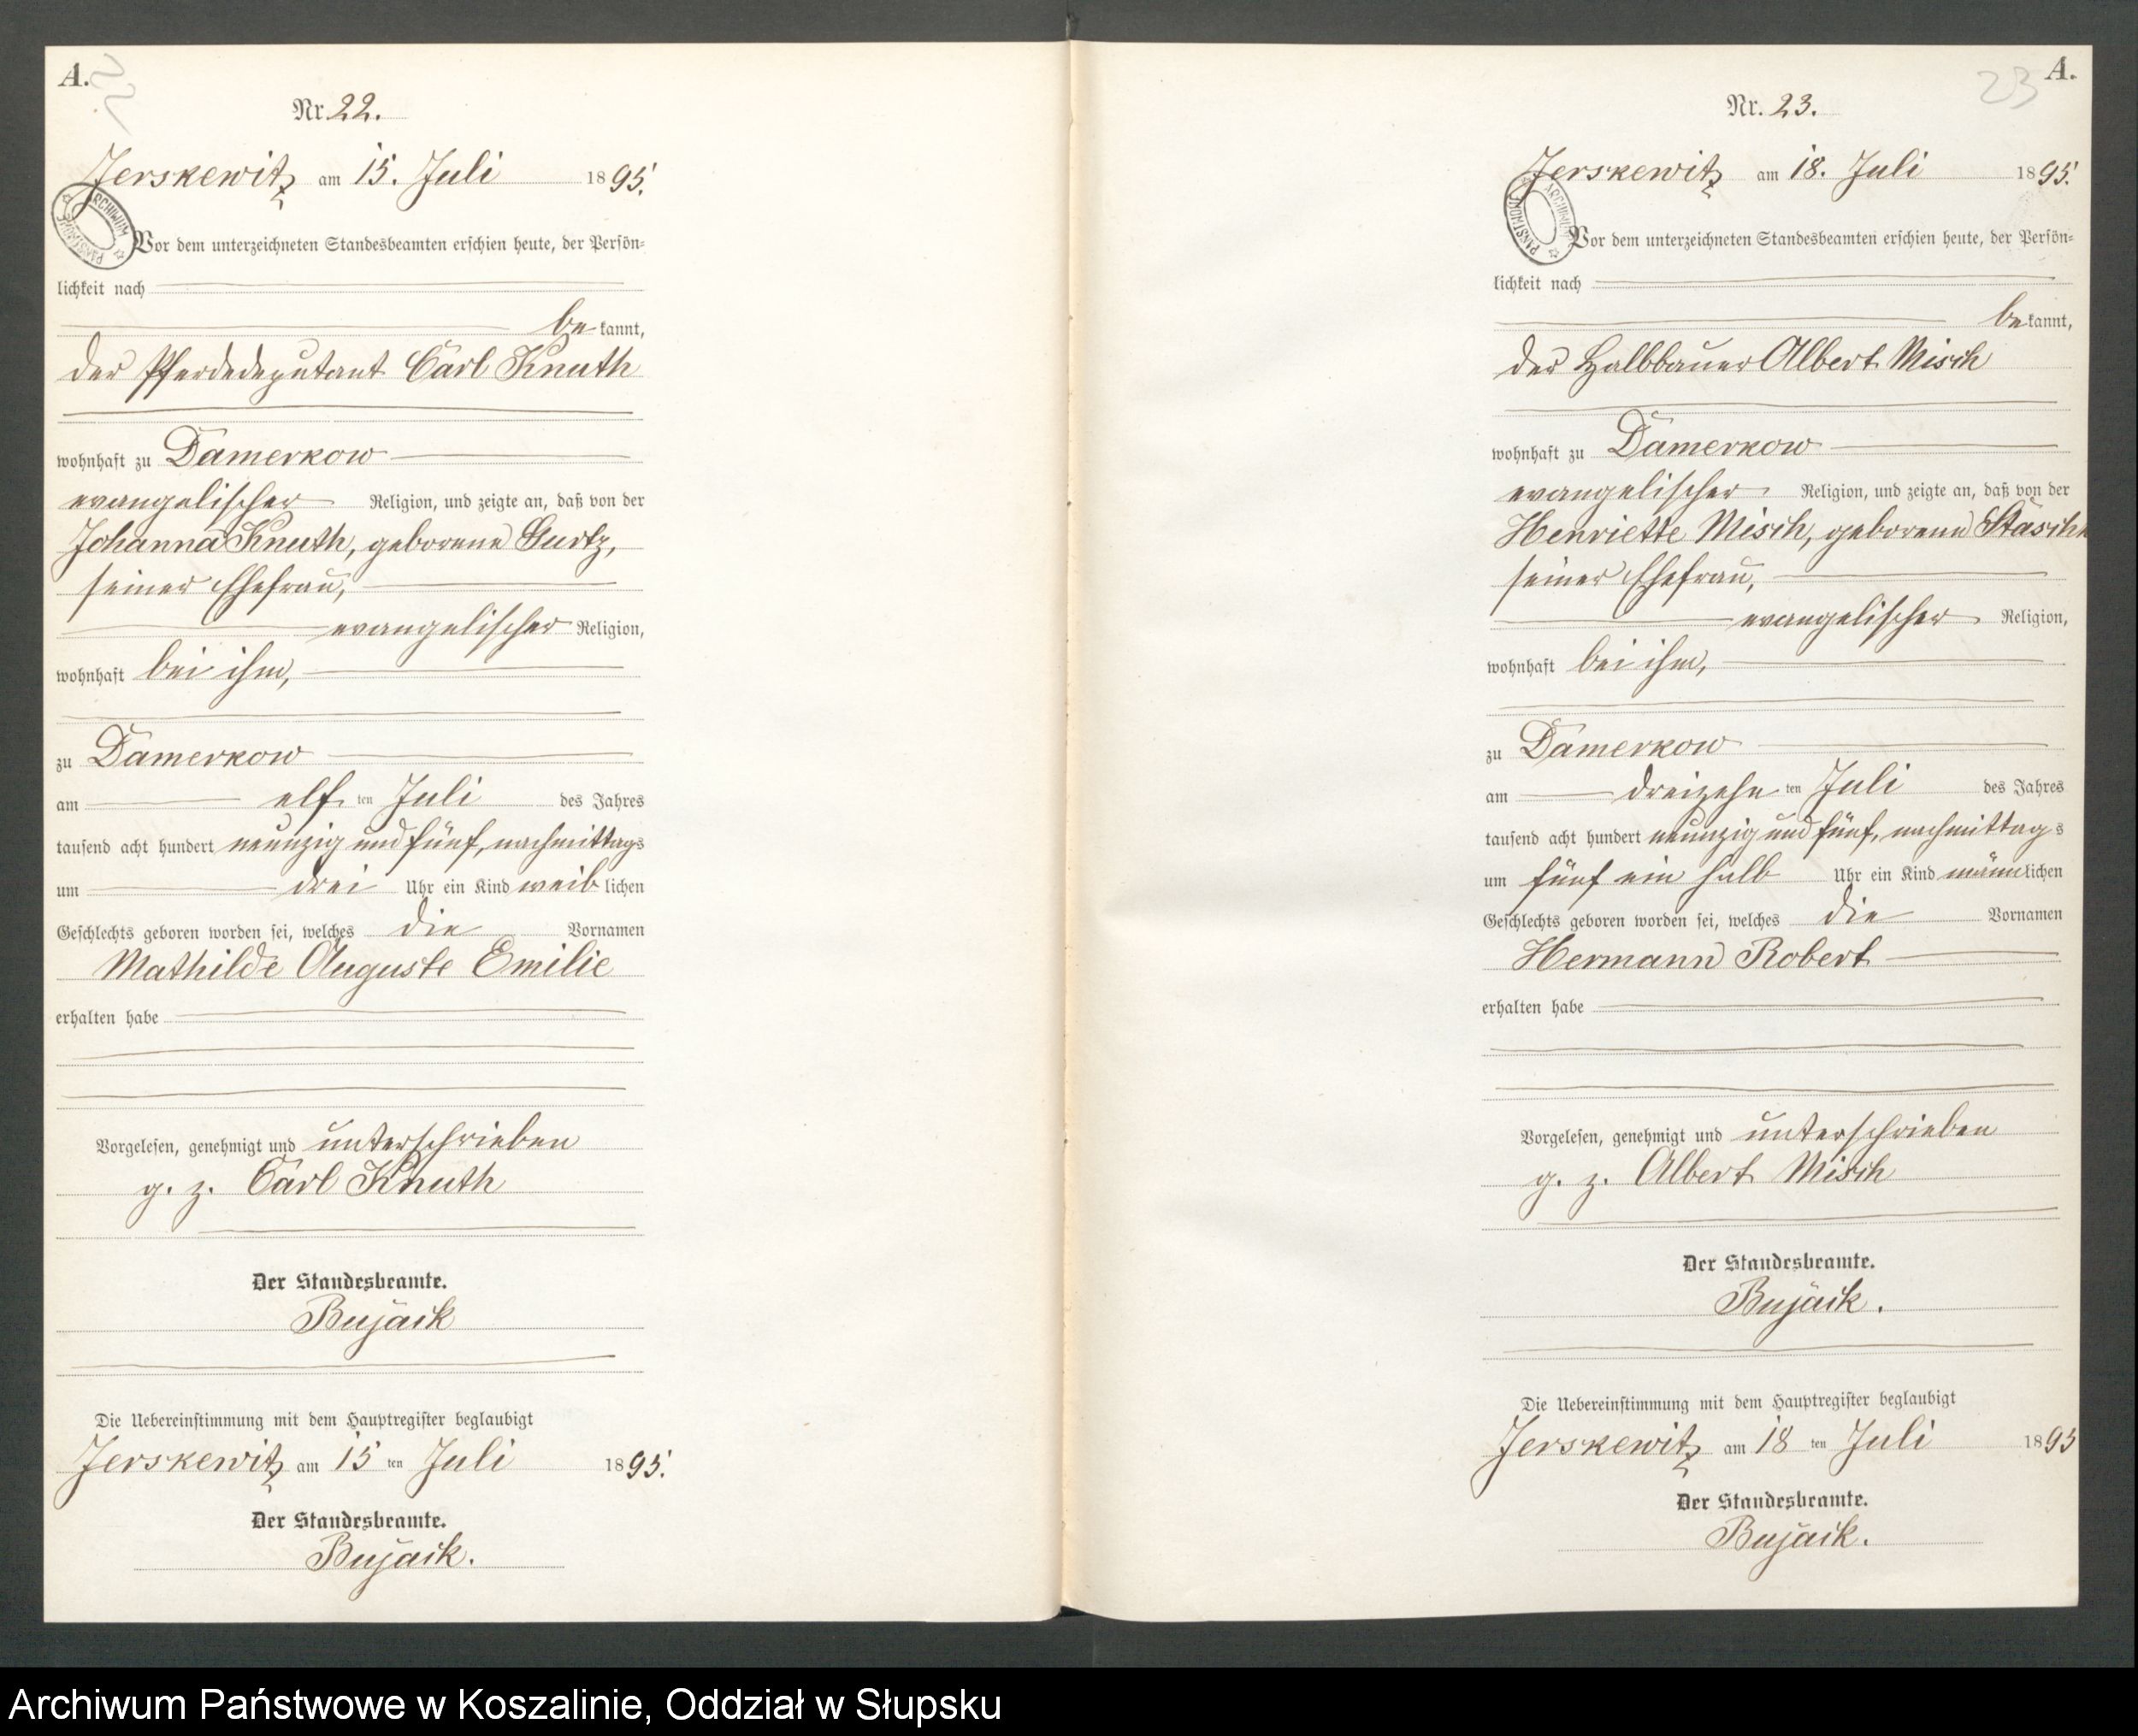 A.
Nr. 22.
Jerskewitz am 15. Juli 1895.
Vor dem unterzeichneten Standesbeamten erschien heute, der Persön=
lichkeit nach
bekannt,
der Pferdedeputant Carl Knuth
wohnhaft zu Damerkow
evangelischer Religion, und zeigte an, daß von der
Johanna Knuth, geborene Gurtz,
seiner Ehefrau,
evangelischer Religion,
wohnhaft bei ihm,
zu Damerkow
am elf ten Juli des Jahres
tausend acht hundert neunzig und fünf, nachmittags
um drei Uhr ein Kind weiblichen
Geschlechts geboren worden sei, welches die Vornamen
Mathilde Auguste Emilie
erhalten habe
Vorgelesen, genehmigt und unterschrieben
g. z. Carl Knuth
Der Standesbeamte.
Bujack
Die Uebereinstimmung mit dem Hauptregister beglaubigt
Jerskewitz am 15 ten Juli 1895.
Der Standesbeamte.
Bujack.
23 A.
Nr. 23.
Jerskewitz am 18. Juli 1895.
Vor dem unterzeichneten Standesbeamten erschien heute, der Persön=
lichkeit nach
bekannt,
der Halbbauer Albert Misch
wohnhaft zu Damerkow
evangelischer Religion, und zeigte an, daß von der
Henriette Misch, geborene
seiner Ehefrau,
evangelischer Religion,
wohnhaft bei ihm,
zu Damerkow
am dreizehn ten Juli des Jahres
tausend acht hundert neunzig und fünf, nachmittags
um fünf ein halb Uhr ein Kind männlichen
Geschlechts geboren worden sei, welches die Vornamen
Hermann Robert
erhalten habe
Vorgelesen, genehmigt und unterschrieben
g. z. Albert Misch
Der Standesbeamte.
Bujack.
Die Uebereinstimmung mit dem Hauptregister beglaubigt
Jerskewitz am 18 ten Juli 1895
Der Standesbeamte.
Bujack.
Archiwum Państwowe w Koszalinie, Oddział w Słupsku